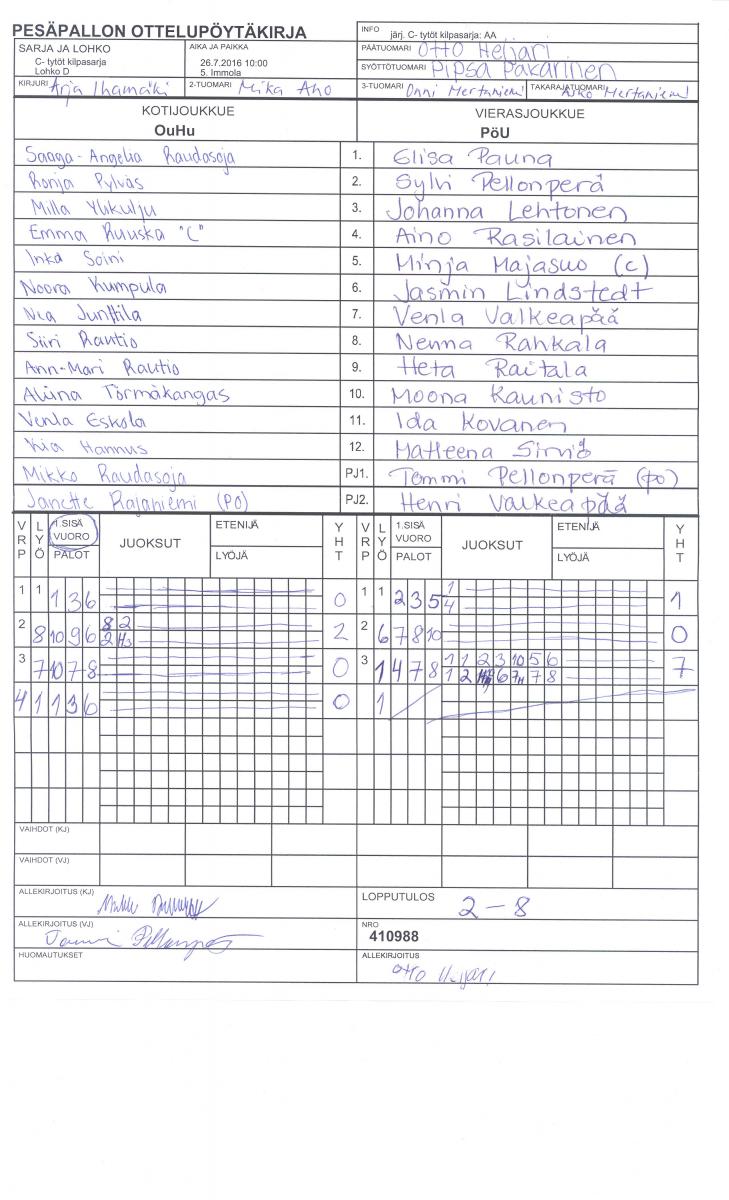 PESÄPALLON OTTELUPÖYTÄKIRJA
INFO järj. C- tytöt kilpasarja: AA
SARJA JA LOHKO
C- tytöt kilpasarja
Lohko D
AIKA JA PAIKKA
26.7.2016 10:00
5. Immola
PÄÄTUOMARI Otto Heljari
SYÖTTÖTUOMARI Pipsa Pakarinen
KIRJURI Arja Ihamäki 2-TUOMARI Mika Aho 3-TUOMARI Onni Mertaniemi TAKARAJATUOMARI Mertaniemi
KOTIJOUKKUE VIERASJOUKKUE
OuHu PöU
Saaga-Angelia Raudasoja 1. Elisa Pauna
Ronja Pylväs 2. Sylvi Pellonperä
Milla Ylikulju 3. Johanna Lehtonen
Emma Ruuska "C" 4. Aino Rasilainen
Inka Soini 5. Minja Majasuo (c)
Noora Kumpula 6. Jasmin Lindstedt
Nea Junttila 7. Venla Valkeapää
Siiri Rautio 8. Nenna Rahkala
Ann-Mari Rautio 9. Heta Raitala
Alviina Törmäkangas 10. Moona Kaunisto
Venla Eskola 11. Ida Kovanen
Kia Hannus 12. Matleena Sirviö
Mikko Raudasoja PJ1. Tommi Pellonperä (po)
Janette Rajaniemi (PO) PJ2. Henri Valkeapää
VRP LYÖ 1.SISÄ VUORO PALOT JUOKSUT ETENIJÄ LYÖJÄ YHT VRP LYÖ 1.SISÄ VUORO PALOT JUOKSUT ETENIJÄ LYÖJÄ YHT
1 1 1 3 6 0 1 1 2 3 5 1 1
4
2 8 10 9 6 8 2 2 2 6 7 8 10 0
2 H3
3 7 10 7 8 0 3 1 4 7 8 1 1 2 3 10 5 6 7
1 2 6 7H 7 8
4 1 1 3 6 0 1
VAIHDOT (KJ)
VAIHDOT (VJ)
ALLEKIRJOITUS (KJ)
LOPPUTULOS 2 - 8
ALLEKIRJOITUS (VJ) Tommi Pellonperä
NRO
410988
HUOMAUTUKSET
ALLEKIRJOITUS
Otto Heljari